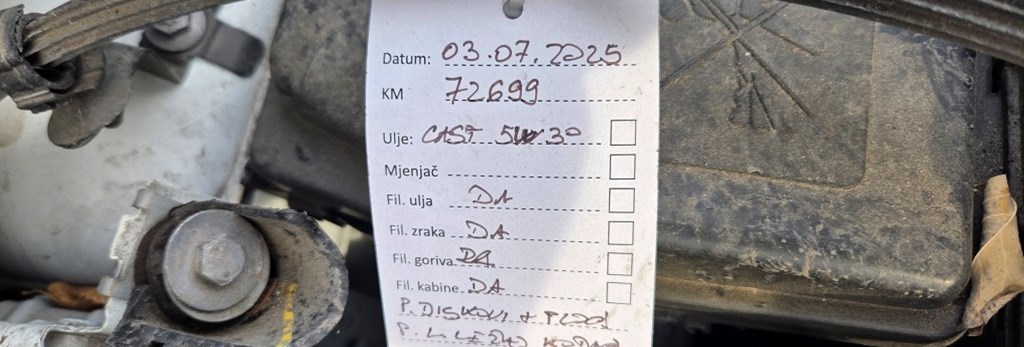 Datum: 03.07.2025
KM 72699
Ulje: CAST 5W30
Mjenjač
Fil. ulja DA
Fil. zraka DA
Fil. goriva DA
Fil. kabine DA
P. DISKOVI +
P. L LEŽAJ